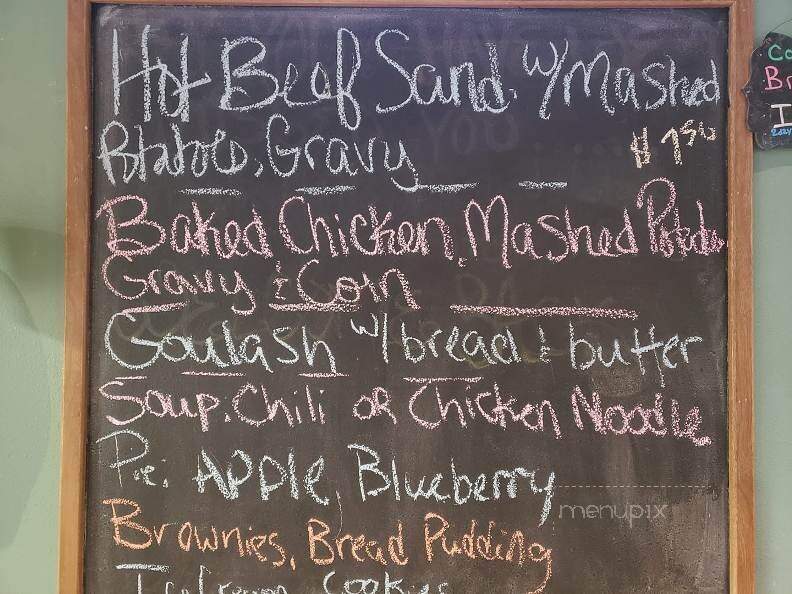 Hot Beef Sand. w/ Mashed
Potatoes, Gravy $ 7.50
Baked Chicken, Mashed Potatoes
Gravy & Corn
Goulash w/ bread & butter
Soup: Chili OR Chicken Noodle
Pie: Apple, Blueberry
menupix
Brownies, Bread Pudding
Cookies